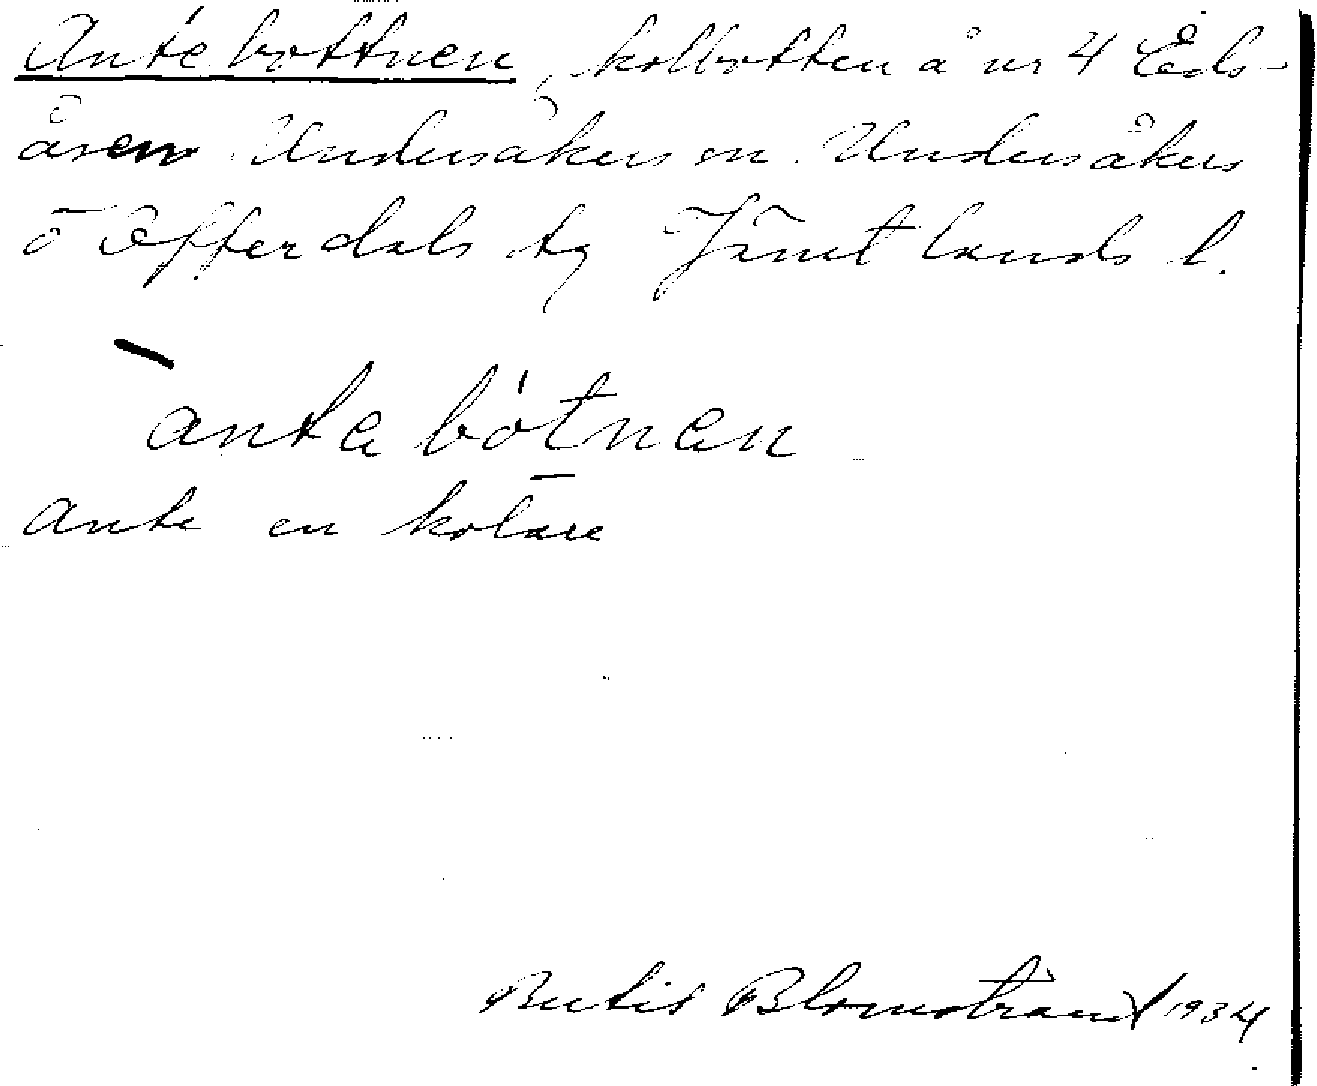 Antebottnen, kolbotten å nr 4 Eds-
åsen Undersåkers sn Undersåkers
o Offerdals tg Jämtlands l.
ante bòtnen
Ante en kolare
Bertil Blomstrand 1934